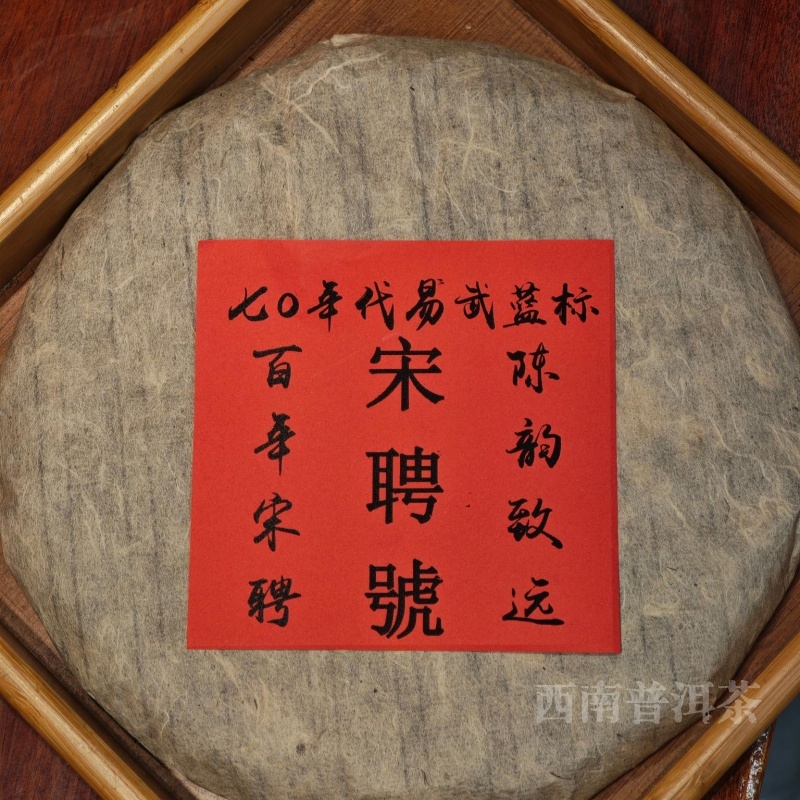 七〇年代易武蓝标
陈韵致远
宋聘號
百年宋聘
西南普洱茶